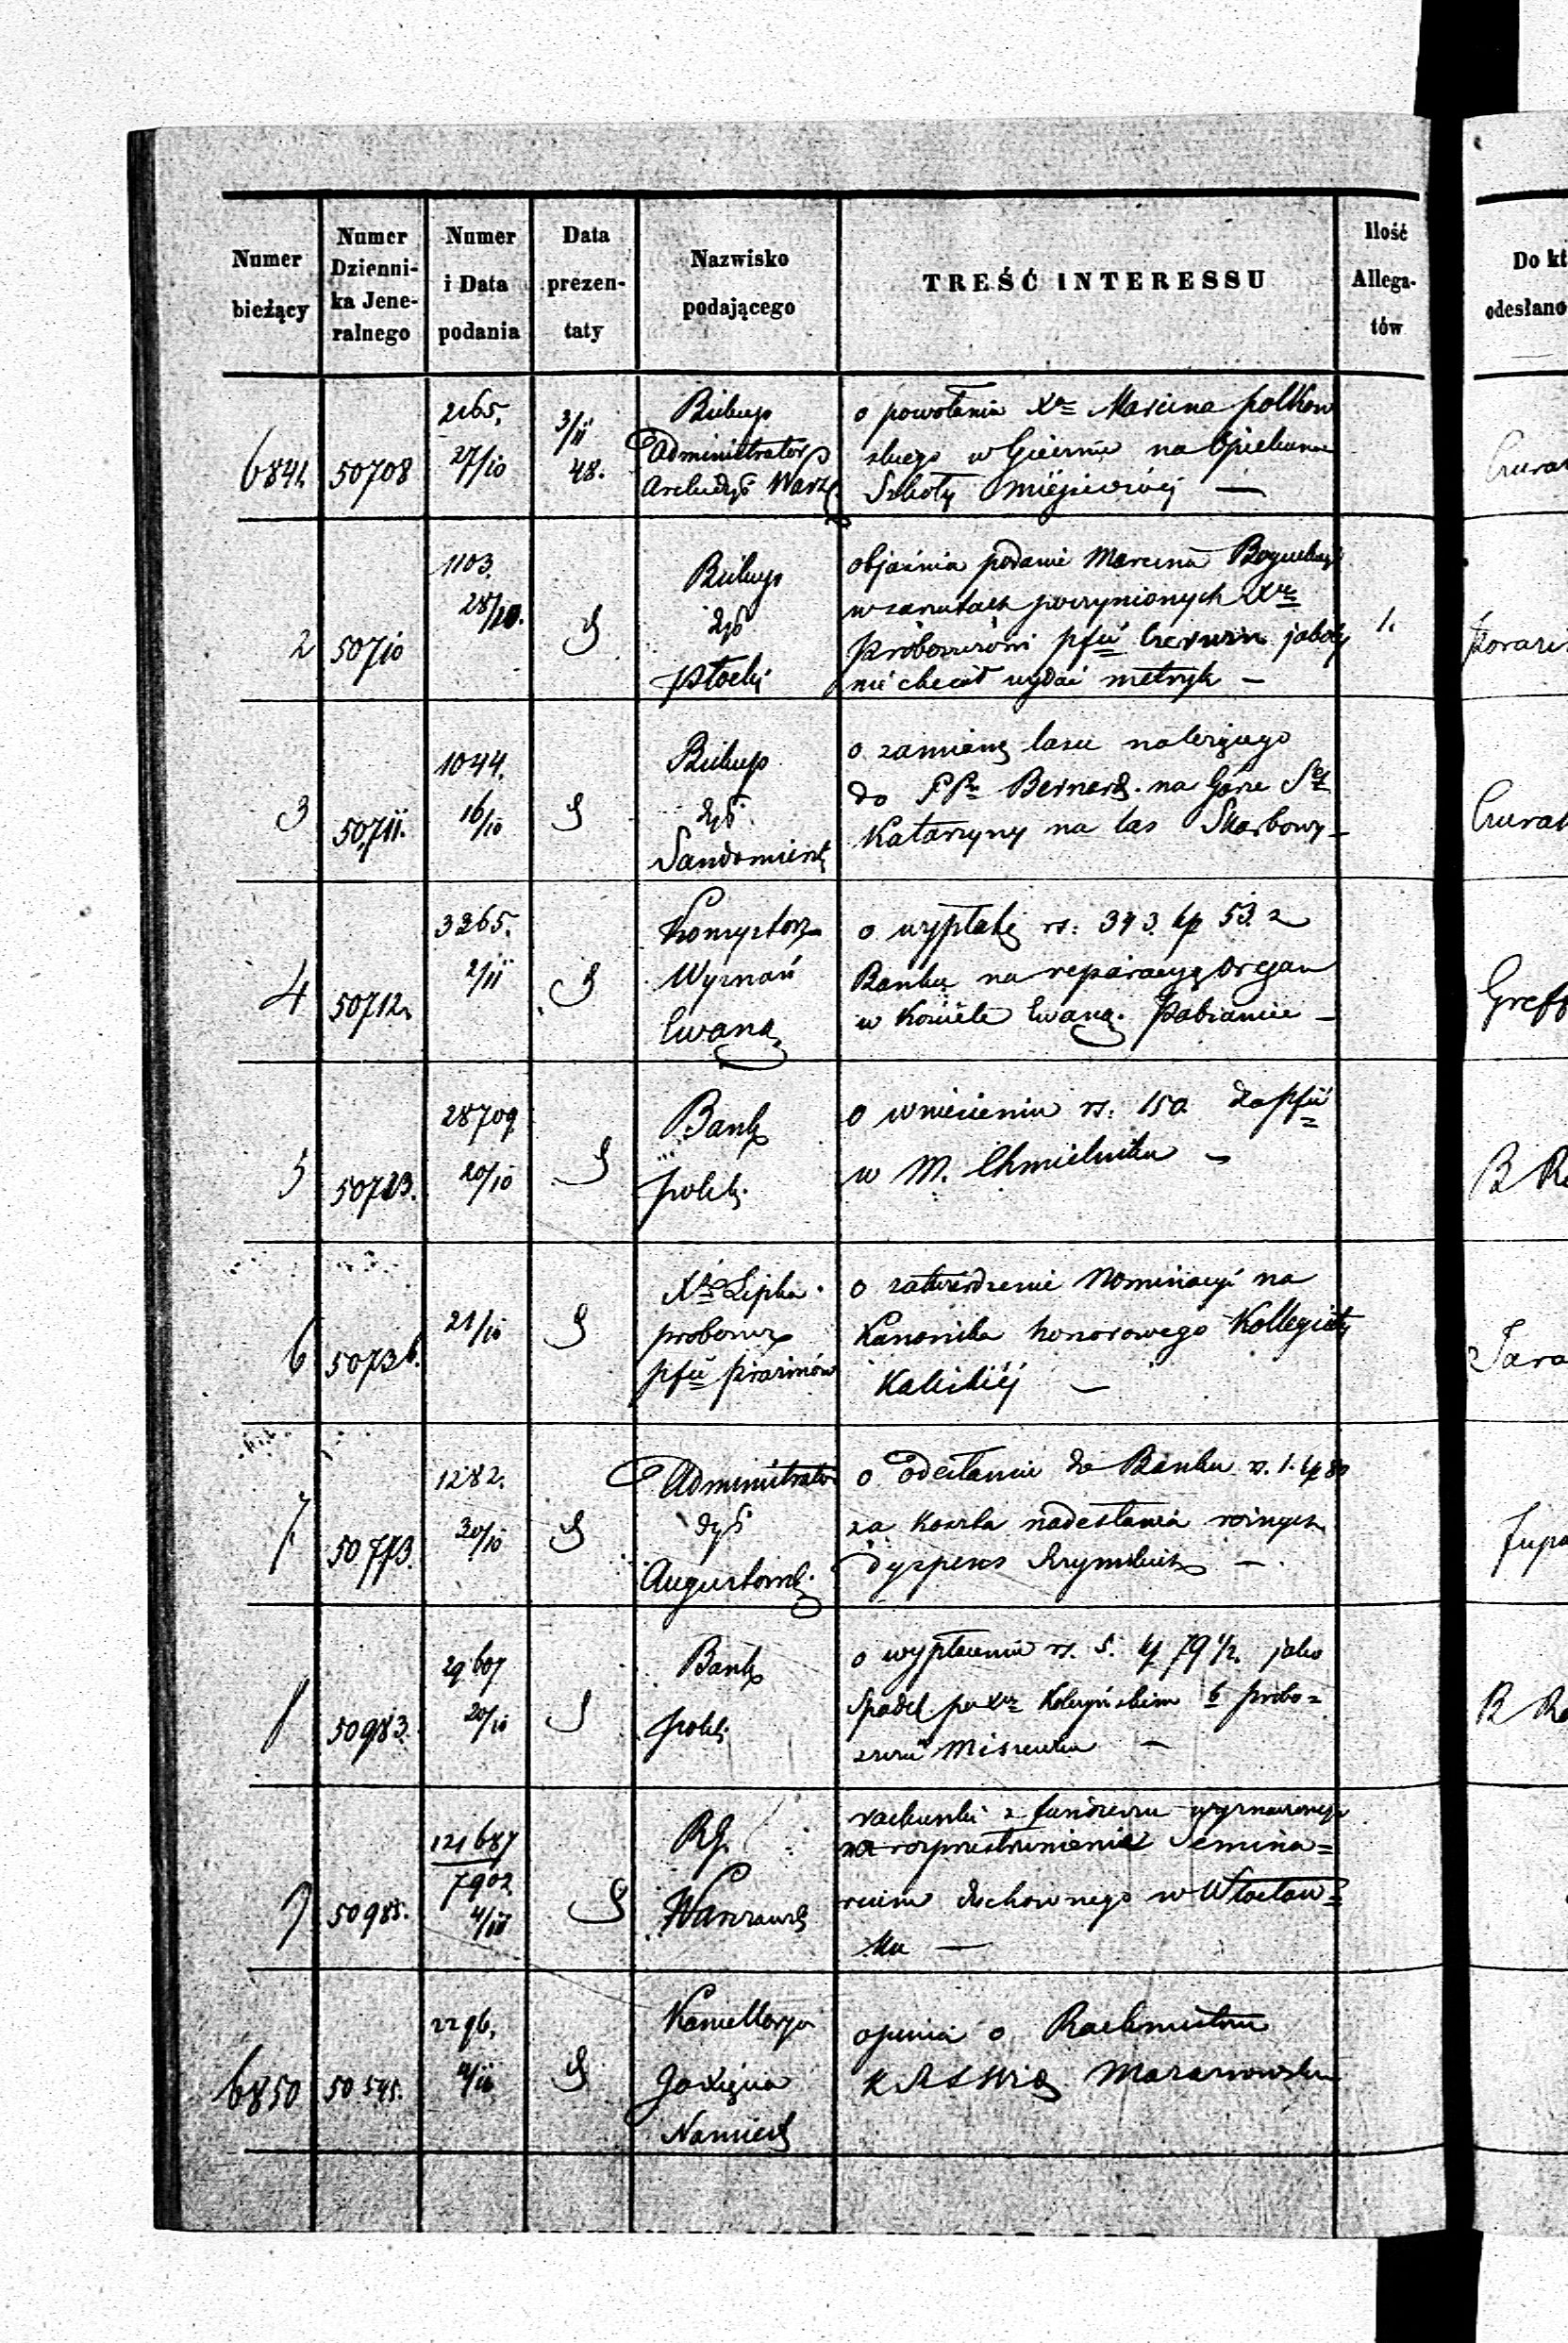 Numer bieżący
Numer Dziennika Jeneralnego
Numer i Data podania
Data prezentaty
Nazwisko podającego
TREŚĆ INTERESSU
Ilość Allegatów
Do kt
odesłano
6841. 50708 2165. 27/10 3/11 48.
Biskup
Administrator
Archidyec Warsz
o powołanie Xa Marcina polkow
skiego w na Opiekuna
Szkoły miejscowéj —
2 50710 1103. 28/10. S
Biskup
dye
Płocki
objaśnia podanie Marcina
w zarzutach poczynionych Xu
Proboszczowi pfii Czerwin jakoby
nie chciał wydać metryk — 1.
3 50711. 1044. 16/10 S
Biskup
dye.
Sandomiersk
o zamianę lasu należącego
do PP. Bernard. na Górze Sej
Katarzyny na las Skarbowy —
4 50712. 3265. 2/11 S
Konsystorz
Wyznań
Ewang
o wypłatę rs: 393. kp 53. z
Banku na reparacyą Organ
w Kościele Ewang. Pabianice —
5 50723. 28709 20/10 S
Bank
polsk.
o wniesieniu rs: 150. dla pfii
w M. Chmielniku —
6 50736. 21/10 S
Xdz Lipka
proboszcz
pfii
o zatwierdzenie Nominacyi na
Kanonika honorowego Kollegiaty
Kaliskiéj —
7. 50773. 1282. 30/10 S
Administrator
dye
Augustows.
o odesłanie do Banku rs. 1. kp 80
za koszta nadesłania różnych
dyspens Rzymskich —
8 50983. 29607 20/10 S
Bank
polsk
o wypłacenie rs. 5. kp 79 1/2. jako
Spadek po Xdz b probo=
szczu —
9 50985. 121687 7902 4/11 S
R.G.
Warszawsk
rachunki z funduszu wyznaczonego
na rozprzestrzenienie Semina=
rium duchownego w Włocław=
ku —
6850 50545. 2296. 4/11 S
Kancellarya
Jo Xięcia
Namiest
opinia o Rachmistrzu
KRSWiD
Curat
Curat
Greff
B Ra
B Ra